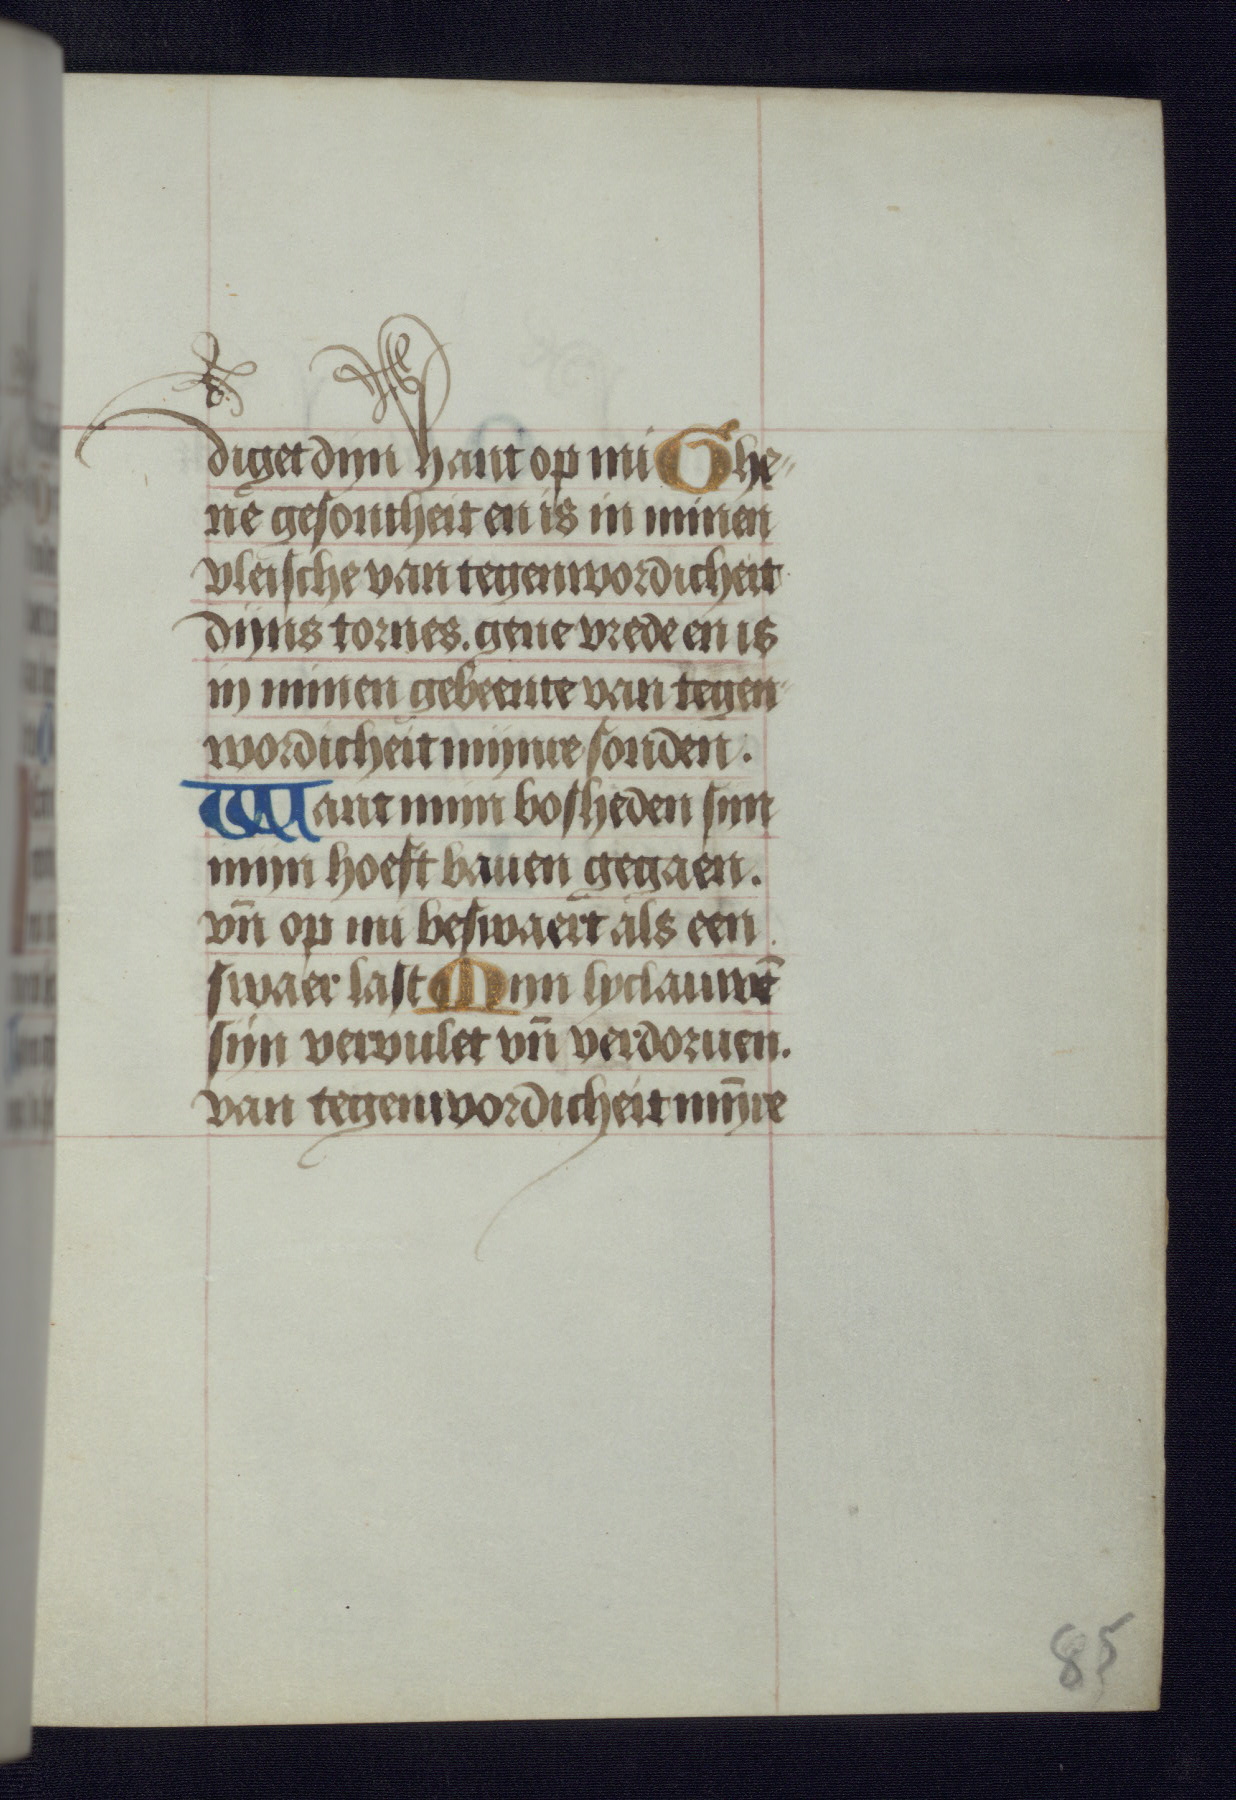 diget dijn hant op mi Ghe„
ne gesontheit en is in minen
vleische van tegenwordicheit
dijns tornes. gene vrede en is
in minen gebeente van tegen„
wordicheit mijnre sonden.
Want mijn bosheden sijn
mijn hoeft bauen gegaen.
vn̄ op mi beswaert als een
swaer last Mijn lyclauwē
sijn vervulet vn̄ verdoruen.
van tegenwordicheit mīnre
85